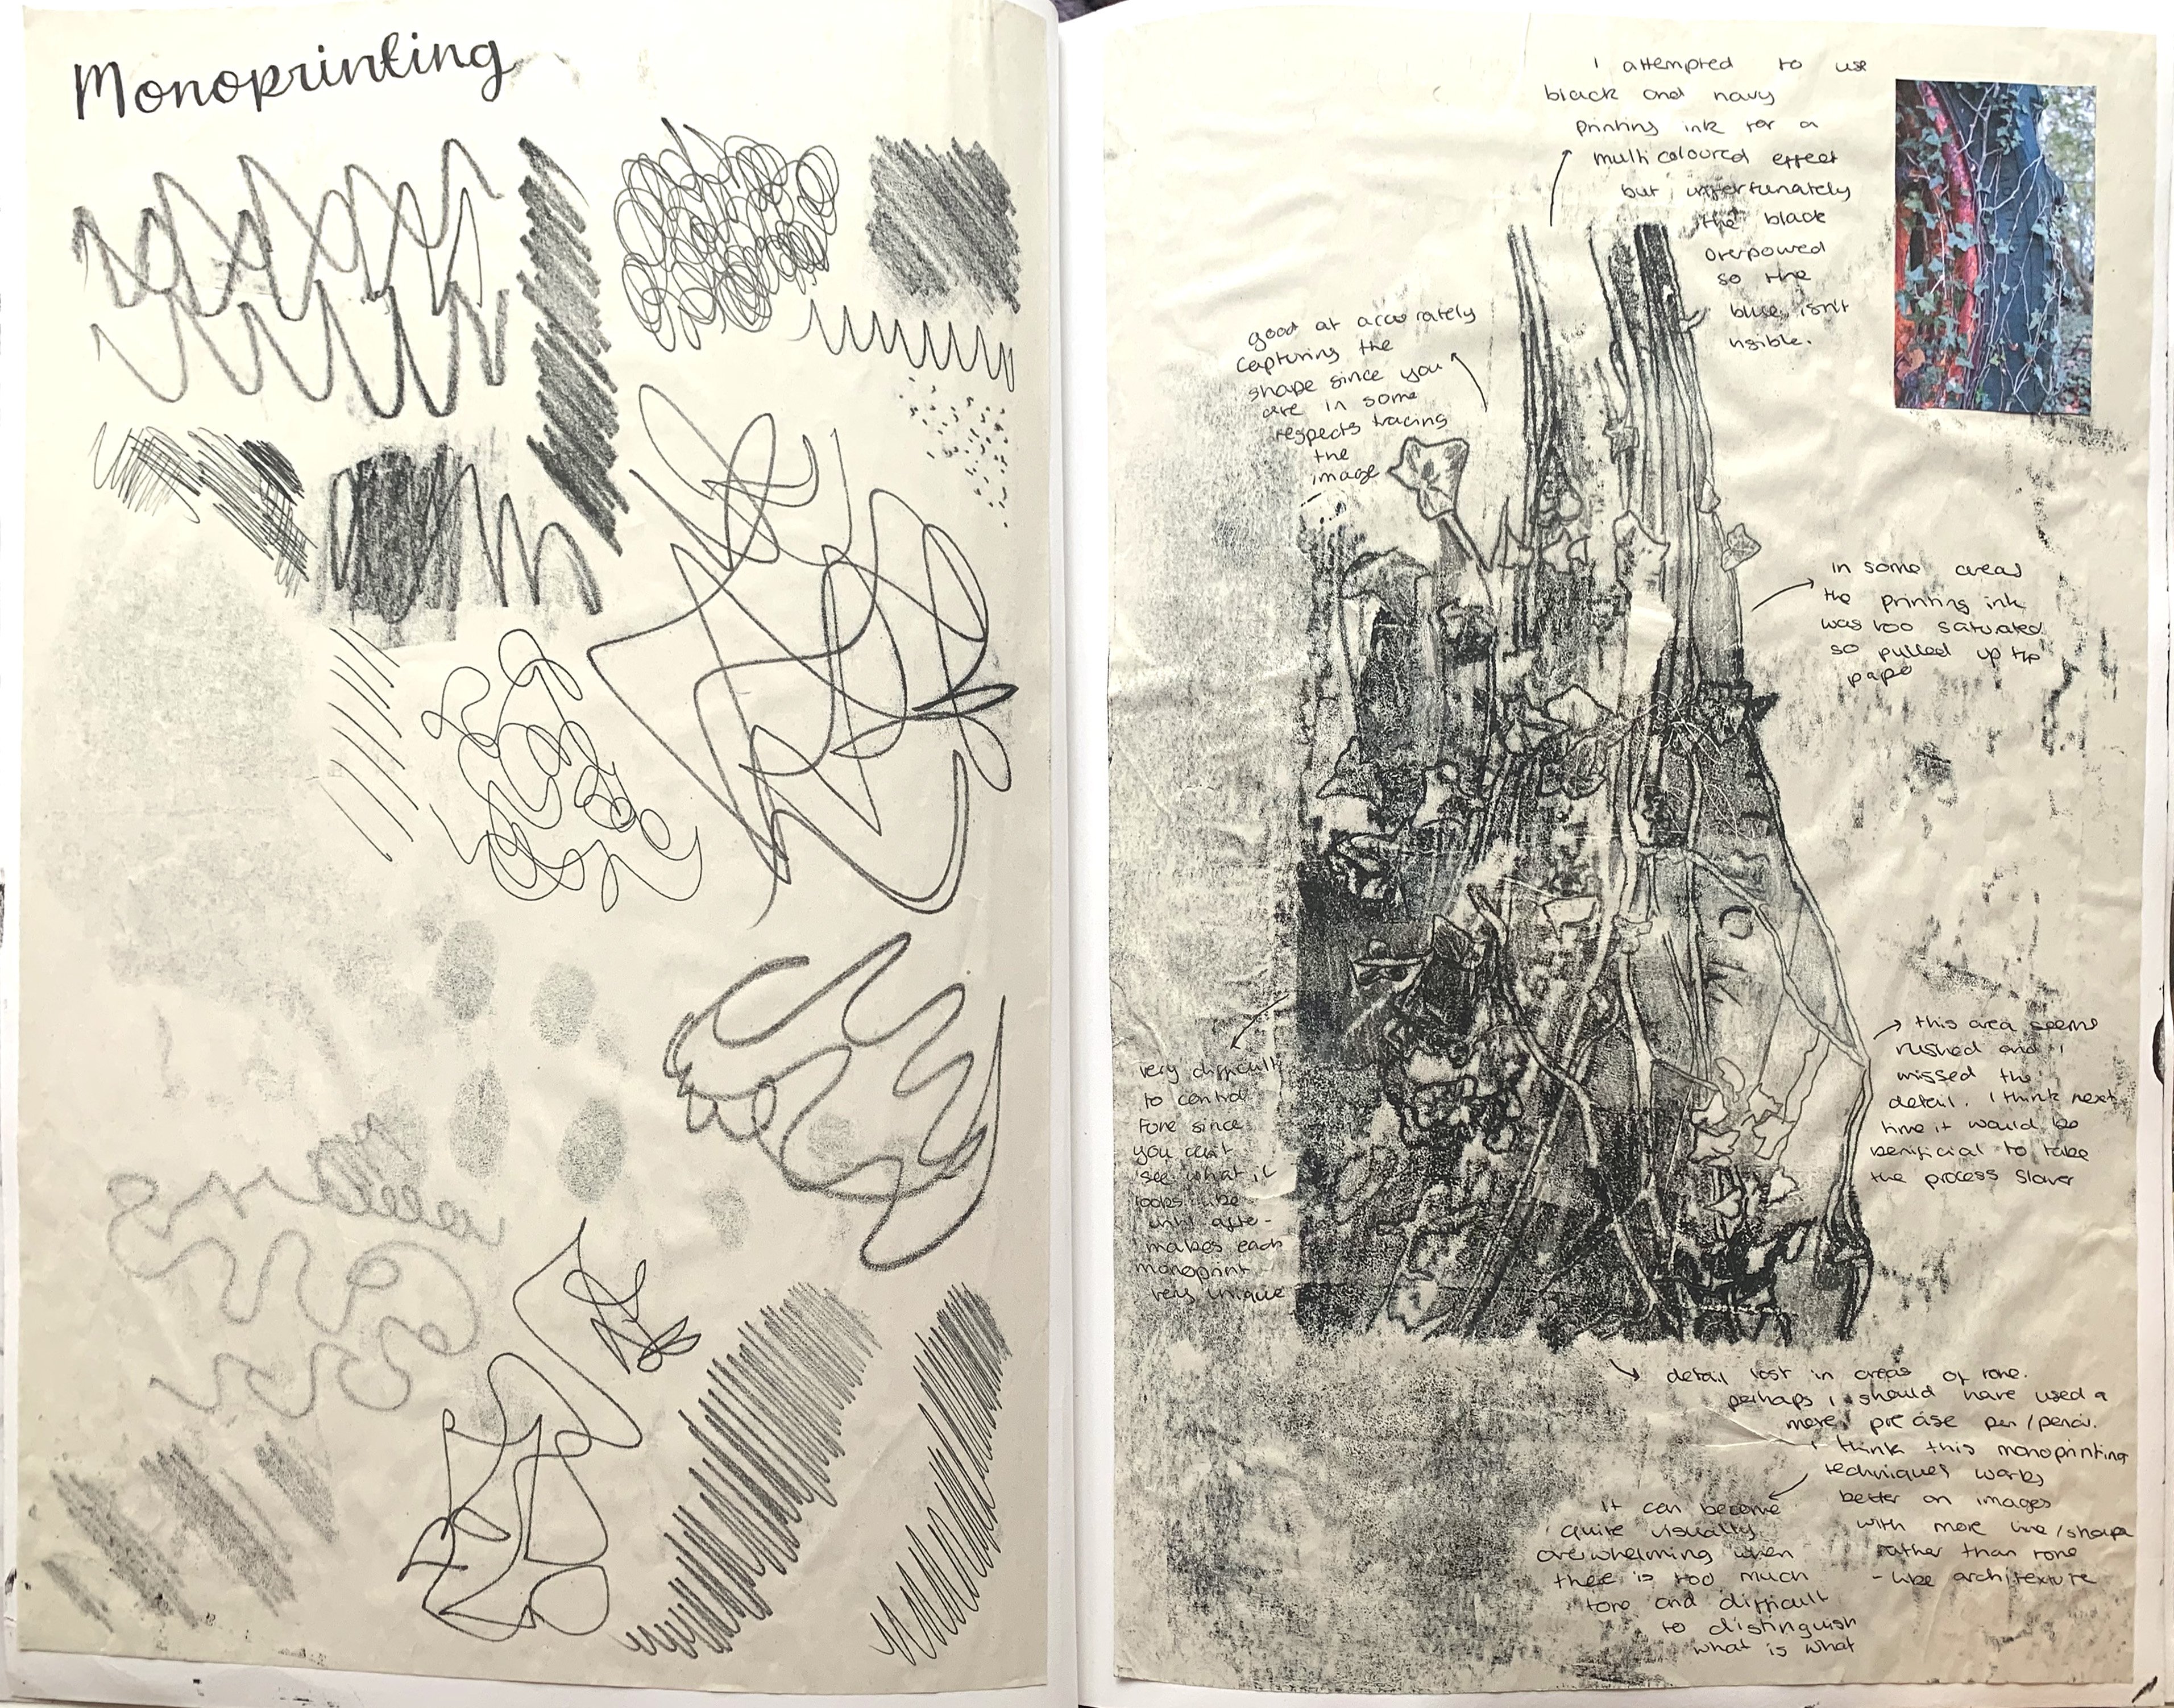 Monoprinting
I attempted to use
black and navy
printing ink for a
multi coloured effect
but unfortunately
the black
overpowed
so the
blue isn't
visible.
good at accurately
capturing the
shape since you
are in some
respects tracing
the
image
in some areas
the printing ink
was too saturated
so pulled up the
pape
this area seems
rushed and i
missed the
detail. I think next
time it would be
benificial to take
the process slower
very difficult
to control
tone since
you can't
see what it
looks like
until after -
makes each
monoprint
very unique
detail lost in areas of tone.
perhaps i should have used a
more precise pen/pencil.
I think this monoprinting
techniques works
better on images
with more line/shape
rather than tone
- like architexture
it can become
quite visually
overwhelming when
there is too much
tone and difficult
to distinguish
what is what